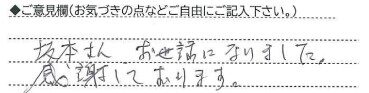 ◆ご意見欄(お気づきの点などご自由にご記入下さい。)
坂本さん お世話になりました。
感謝しております。